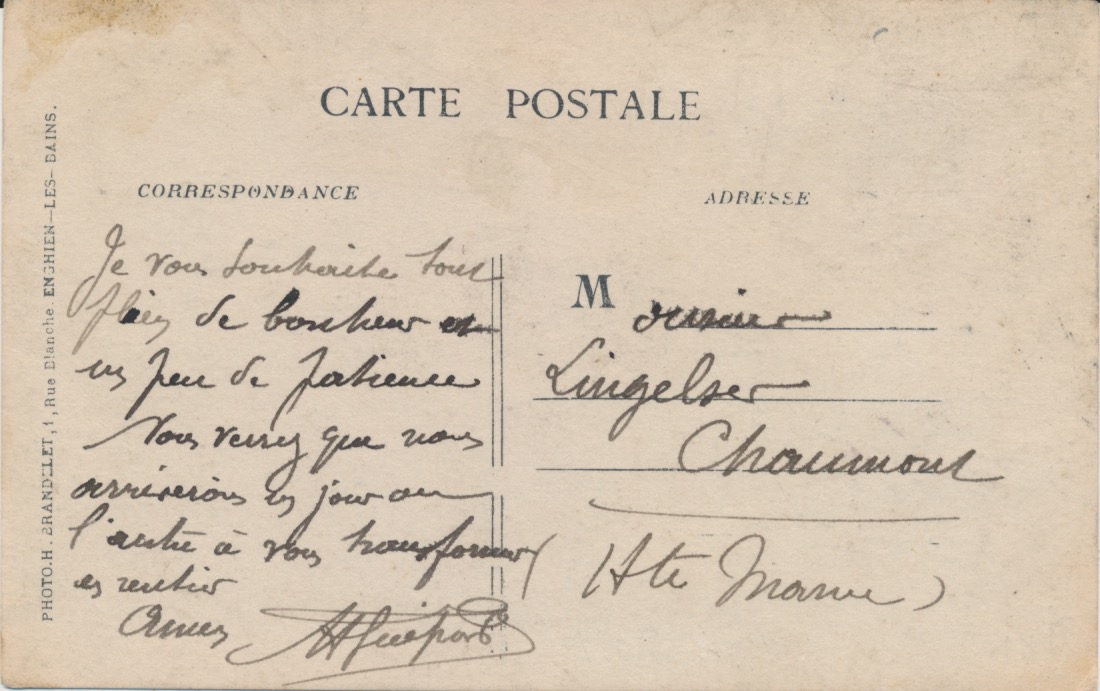 CARTE POSTALE
CORRESPONDANCE
ADRESSE
PHOTO. H. BRANDELET, 1, Rue Blanche. ENGHIEN-LES-BAINS.
Je vous souhaite tout
plein de bonheur et
un peu de patience
Vous verrez que nous
arriverons un jour ou
l'autre à vous transformer
en rentier
M onsieur
Lingelser
Chaumont
(Hte Marne)